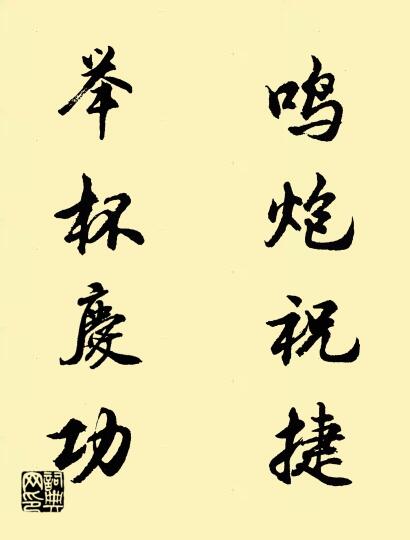 鸣炮祝捷
举杯慶功
詞典网印